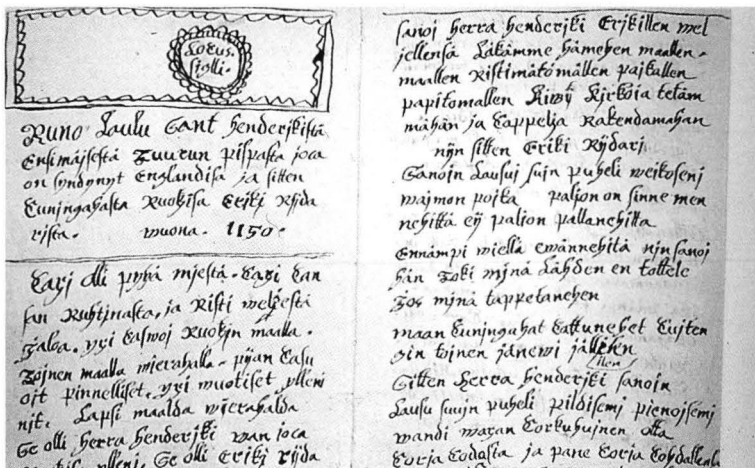 Runo Laulu Sant henderjkistä
Ensimäjsestä Tuurun pispasta joca
on syndynyt Englandisa ja sitten
Cuningahasta Ruotzisa Erikj Rijda
rista. wuona. 1150.
Caxj olli pyhä mjestä. Caxi Can
san Ruhtinasta, ja Risti weljestä
jaloa. yxi Caswoj Ruotzin maalla.
Tojnen maalla wierahalla. pijan Casu
ojt pinnelliset, yxi wuotiset ylleni
nit. Lapsi maalda wierahalda
Se olli herra henderjki wan joca
ylleni. Se olli Erikj rijda
sanoj herra henderjki Erjkillen wel
jellensä Läkämme hämehen maallen.
maallen Ristimätömällen pajkallen
papitomallen Kiwij Kjrkoia tetäm
mähän ja Cappelja Rakendamahan
nijn sitten Eriki Rijdarj
Sanoin Lausuj sujn puheli weikosenj
wajmon pojka paljon on sinne men
nehittä eij paljon pallanehitta
Ennämpi wiellä ewännehitä njn sanoj
hän Toki mjnä Lähden en tottele
Jos mjnä tappetanehen
maan Cuningahat Cattunehet Cuiten
gin tojnen jänewi jällehen
llen
Sitten herra henderjki sanoin
Lausu suujn puheli pildisemj pienojsemj
wandi waxan Corkuhujnen otta
Corja Codasta ja pane Corja Cohdallensa